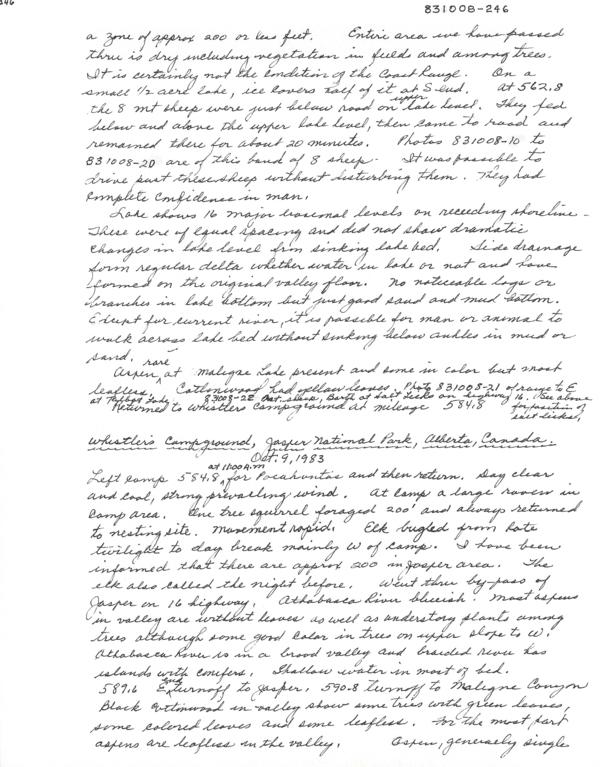 831008-246
a zone of approx 200 or less feet. Entire area we have passed
thru is dry including vegetation in fields and among trees.
It is certainly not the condition of the Coast Range. On a
small 1/2 acre lake, ice covers half of it at S end. at 562.8
the 8 mt sheep were just below road on upper lake level. They fed
below and above the upper lake level, then came to road and
remained there for about 20 minutes. Photos 831008-10 to
831008-20 are of this band of 8 sheep. It was possible to
drive past these sheep without disturbing them. They had
complete confidence in man.
Lake shows 16 major seasonal levels on receeding shoreline -
These were of equal spacing and did not show dramatic
changes in lake level from sinking lake bed. Side drainage
form regular delta whether water in lake or not and have
formed on the original valley floor. No noticeable logs or
branches in lake bottom but just good sand and mud bottom.
Except for current river, it is possible for man or animal to
walk across lake bed without sinking below ankles in mud or
sand.
Aspen rare at maligne Lake present and some in color but most
leafless. Cottonwood had yellow leaves. Photo 831008-21 of range to E
at Talbot Lake 83008-22 at Salt Licks on highway 16. See above
Returned to Whistlers Campground at mileage 584.8 for position of
salt licks.
Whistlers Campground, Jasper National Park, Alberta, Canada.
Oct. 9, 1983
Left camp 584.8 at 11:00 A.M for Pocahontas and then return. Day clear
and cool, strong prevailing wind. At camp a large raven in
camp area. One tree squirrel foraged 200' and always returned
to nesting site. Movement rapid. Elk bugled from late
twilight to day break mainly W of camp. I have been
informed that there are approx 200 in Jasper area. The
elk also called the night before. Went thru by-pass of
Jasper on 16 highway. Athabasca River blueish. Most aspens
in valley are without leaves as well as understory plants among
trees although some good color in trees on upper slope to W.
Athabasca River is in a broad valley and braided river has
islands with conifers. Shallow water in most of bed.
589.6 2nd E turnoff to Jasper. 590.8 turnoff to Maligne Canyon
Black Cottonwood in valley show some trees with green leaves,
some colored leaves and some leafless. For the most part
aspens are leafless in the valley. Aspen, generally single